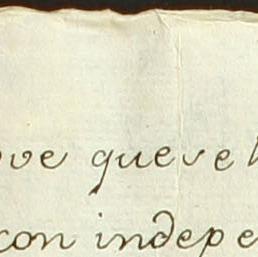 ove que se
con indepe